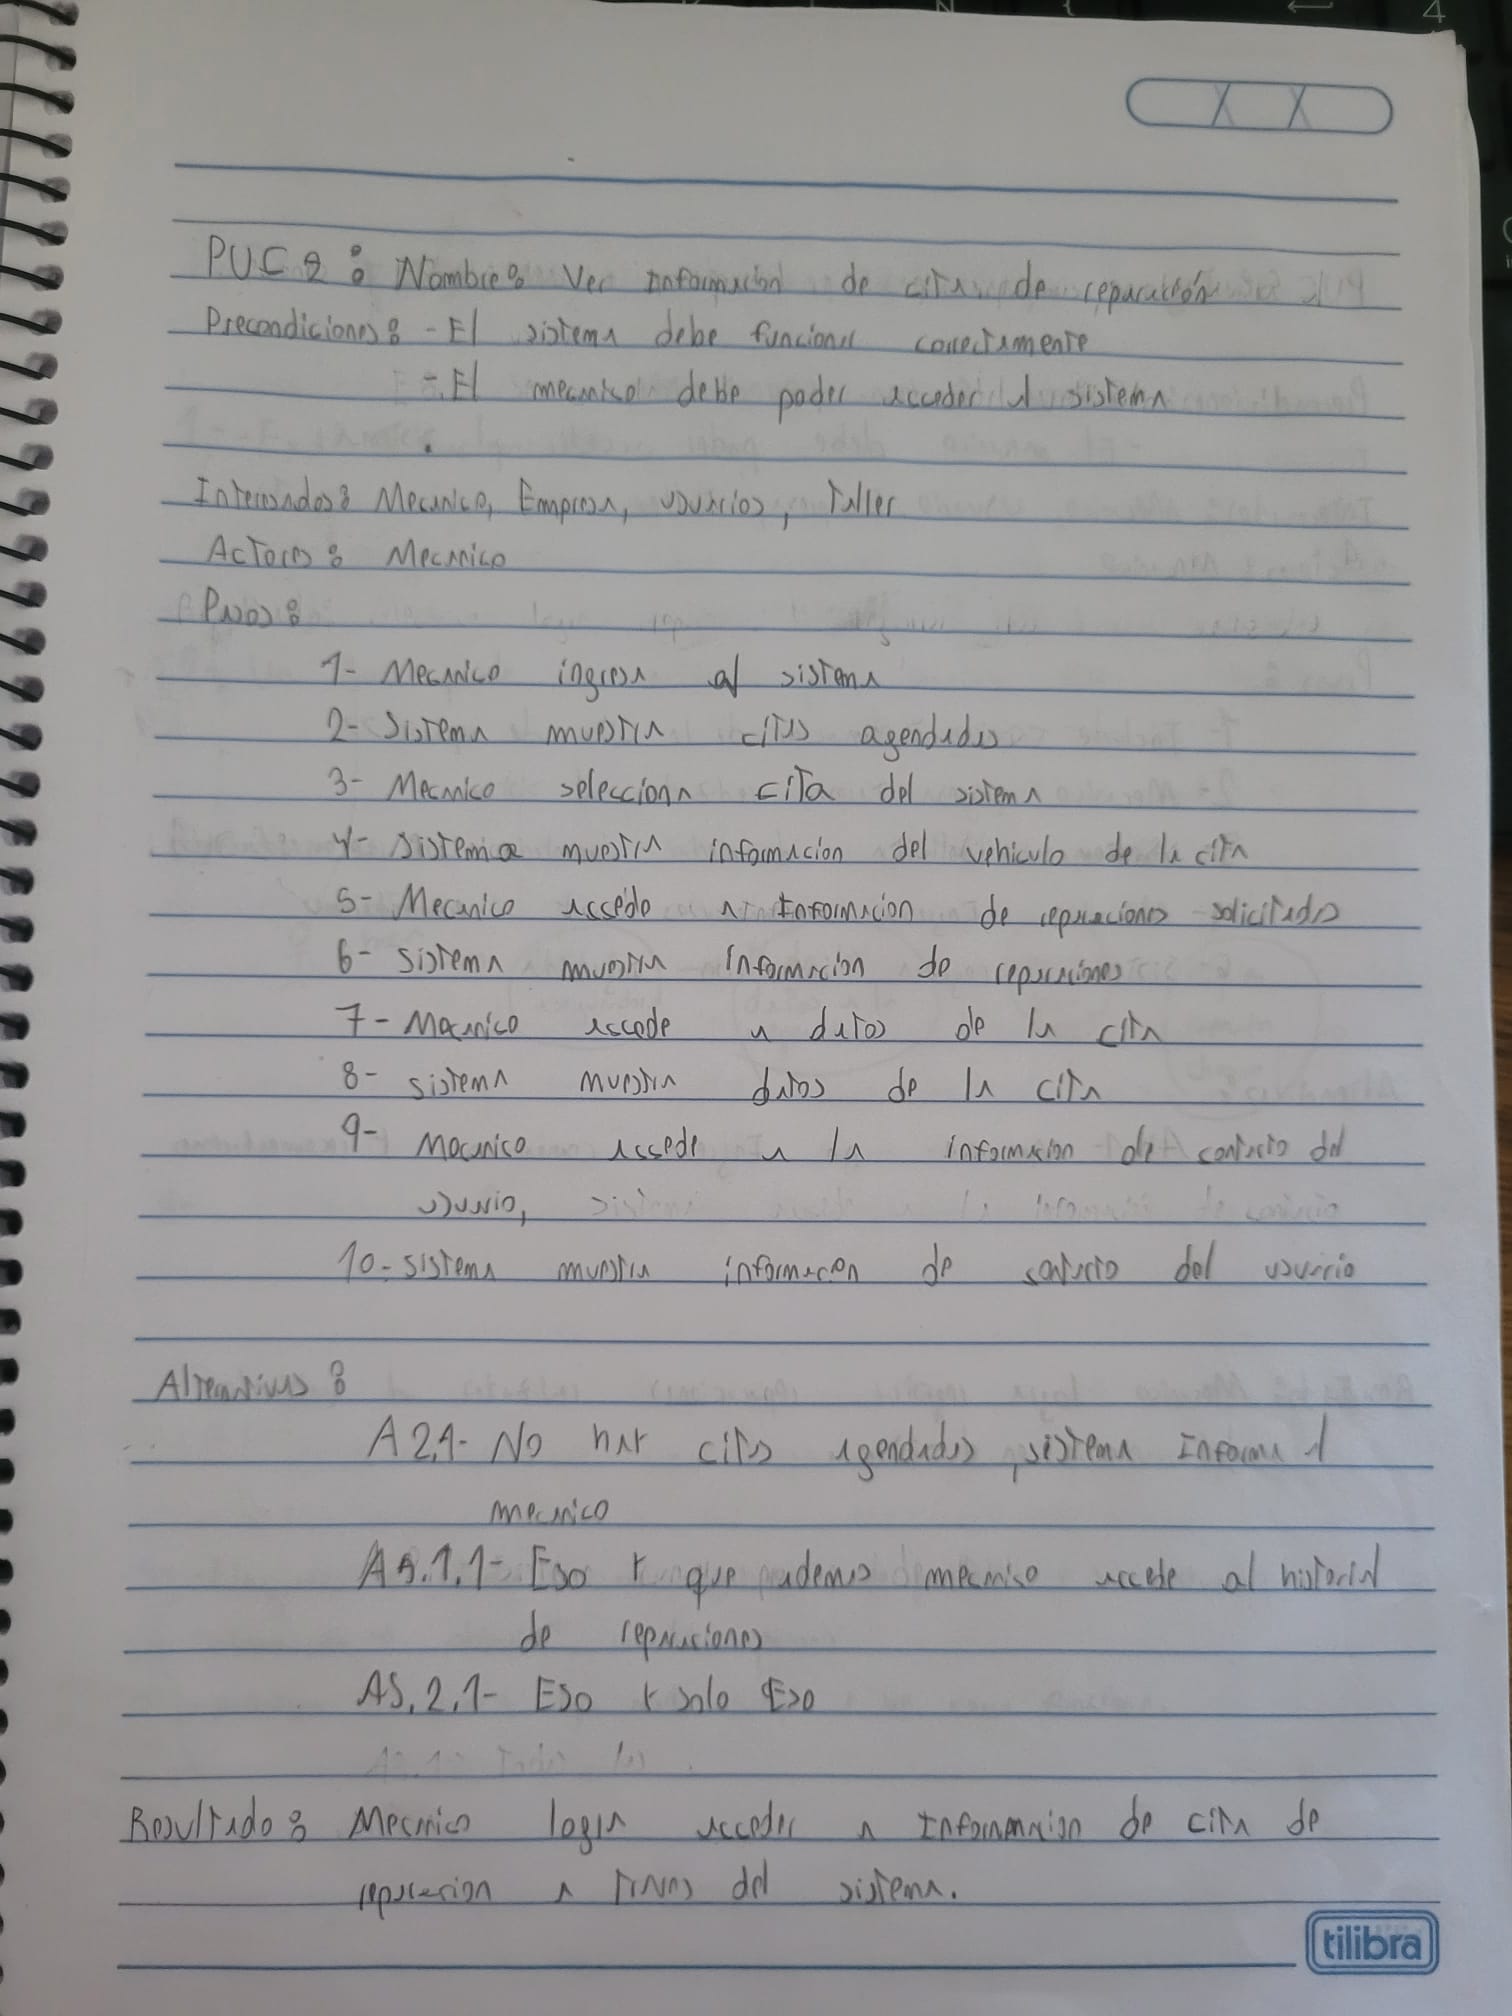 PUC 2 : Nombre: Ver Información de cita de reparación
Precondiciones: - El sistema debe funcionar correctamente
- El mecanico debe poder acceder al sistema
Interesados: Mecanico, Empresa, usuarios, Taller
Actores: Mecanico
Pasos:
1- Mecanico ingresa al sistema
2- Sistema muestra citas agendadas
3- Mecanico selecciona cita del sistema
4- Sistema muestra informacion del vehiculo de la cita
5- Mecanico accede a Informacion de reparaciones solicitadas
6- sistema muestra Información de reparaciones
7- Mecanico accede a datos de la cita
8- sistema muestra datos de la cita
9- Mecanico assede a la informacion de contacto del
usuario,
10- sistema muestra informacion de contacto del usuario
Alternativas:
A 2.1- No hay citas agendadas, sistema Informa al
mecanico
A5.1.1- Eso y que ademas mecanico accede al historial
de reparaciones
A5.2.1- Eso y solo Eso
Resultado: Mecanico logra acceder a Informacion de cita de
reparacion a traves del sistema.
tilibra